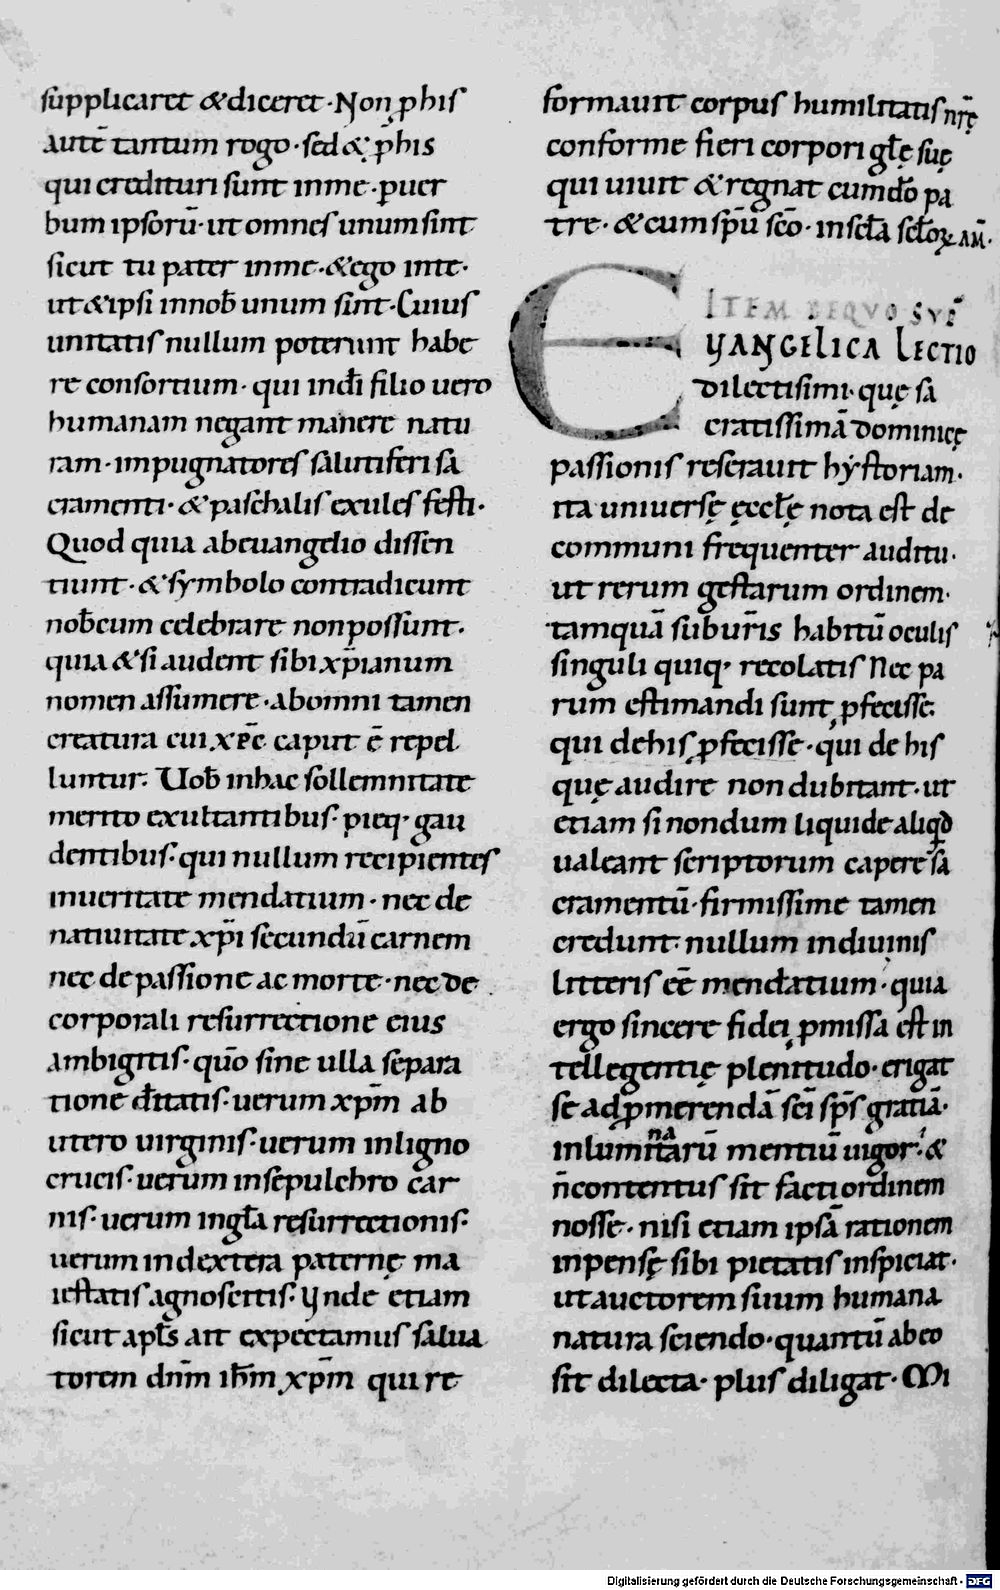 supplicaret & diceret · Non ꝓ his
autē tantum rogo · sed & ꝓ his
qui credituri sunt in me · ꝑ uer
bum ipsorū · ut omnes unum sint
sicut tu pater in me · & ego in te ·
ut & ipsi in nob̄ unum sint · Cuius
unitatis nullum poterunt habe
re consortium · qui in dī filio uero
humanam negant manere natu
ram · impugnatores salutiferi sa
cramenti · & paschalis exules festi ·
Quod quia ab euangelio dissen
tiunt · & symbolo contradicunt
nob̄cum celebrare non possunt ·
quia & si audent sibi xp̄ianum
nomen assumere · ab omni tamen
creatura cui xp̄c caput ē repel
luntur · Uob̄ in hac sollemnitate
merito exultantibus · pieq· gau
dentibus · qui nullum recipientes
in ueritate mendatium · nec de
natiuitate xp̄i secundū carnem
nec de passione ac morte · nec de
corporali resurrectione eius
ambigitis · quō sine ulla separa
tione dītatis · uerum xp̄m ab
utero uirginis · uerum in ligno
crucis · uerum in sepulchro car
nis · uerum in gl̄a resurrectionis ·
uerum in dextera paternę ma
iestatis agnoscitis · Unde etiam
sicut apl̄s ait expectamus salua
torem dn̄m ih̄m xp̄m qui re
formauit corpus humilitatis nr̄ę
conforme fieri corpori gl̄ę suę
qui uiuit & regnat cum dō pa
tre · & cum spū scō · in scl̄a scl̄oꝝ AM̄ ·
ITEM DE QUO SUP̄
EUANGELICA LECTIO
dilectisimi · quę sa
cratissimā dominicę
passionis reserauit hẏstoriam ·
ita uniuersę ęccl̄ę nota est de
communi frequenter auditu ·
ut rerum gestarum ordinem ·
tamquā sub ur̄is habitū oculis
singuli quiq· recolatis Nec pa
rum estimandi sunt ꝓfecisse ·
qui de his ꝓfecisse · qui de his
quę audire non dubitant · ut
etiam si nondum liquide aliqd̄
ualeant scriptorum capere sā
cramentū · firmissime tamen
credunt · nullum in diuinis
litteris eē mendatium · quia
ergo sincere fidei ꝓmissa est in
tellegentię plenitudo · erigat
se ad ꝓmerendā sc̄i sp̄s gratiā ·
inluminatarū mentiū uigor · &
n̄ contentus sit facti ordinem
nosse · nisi etiam ipsā rationem
inpensę sibi pietatis inspiciat ·
ut auctorem suum humana
natura sciendo · quantū ab eo
sit dilecta · plus diligat · Mi
Digitalisierung gefördert durch die Deutsche Forschungsgemeinschaft - DFG